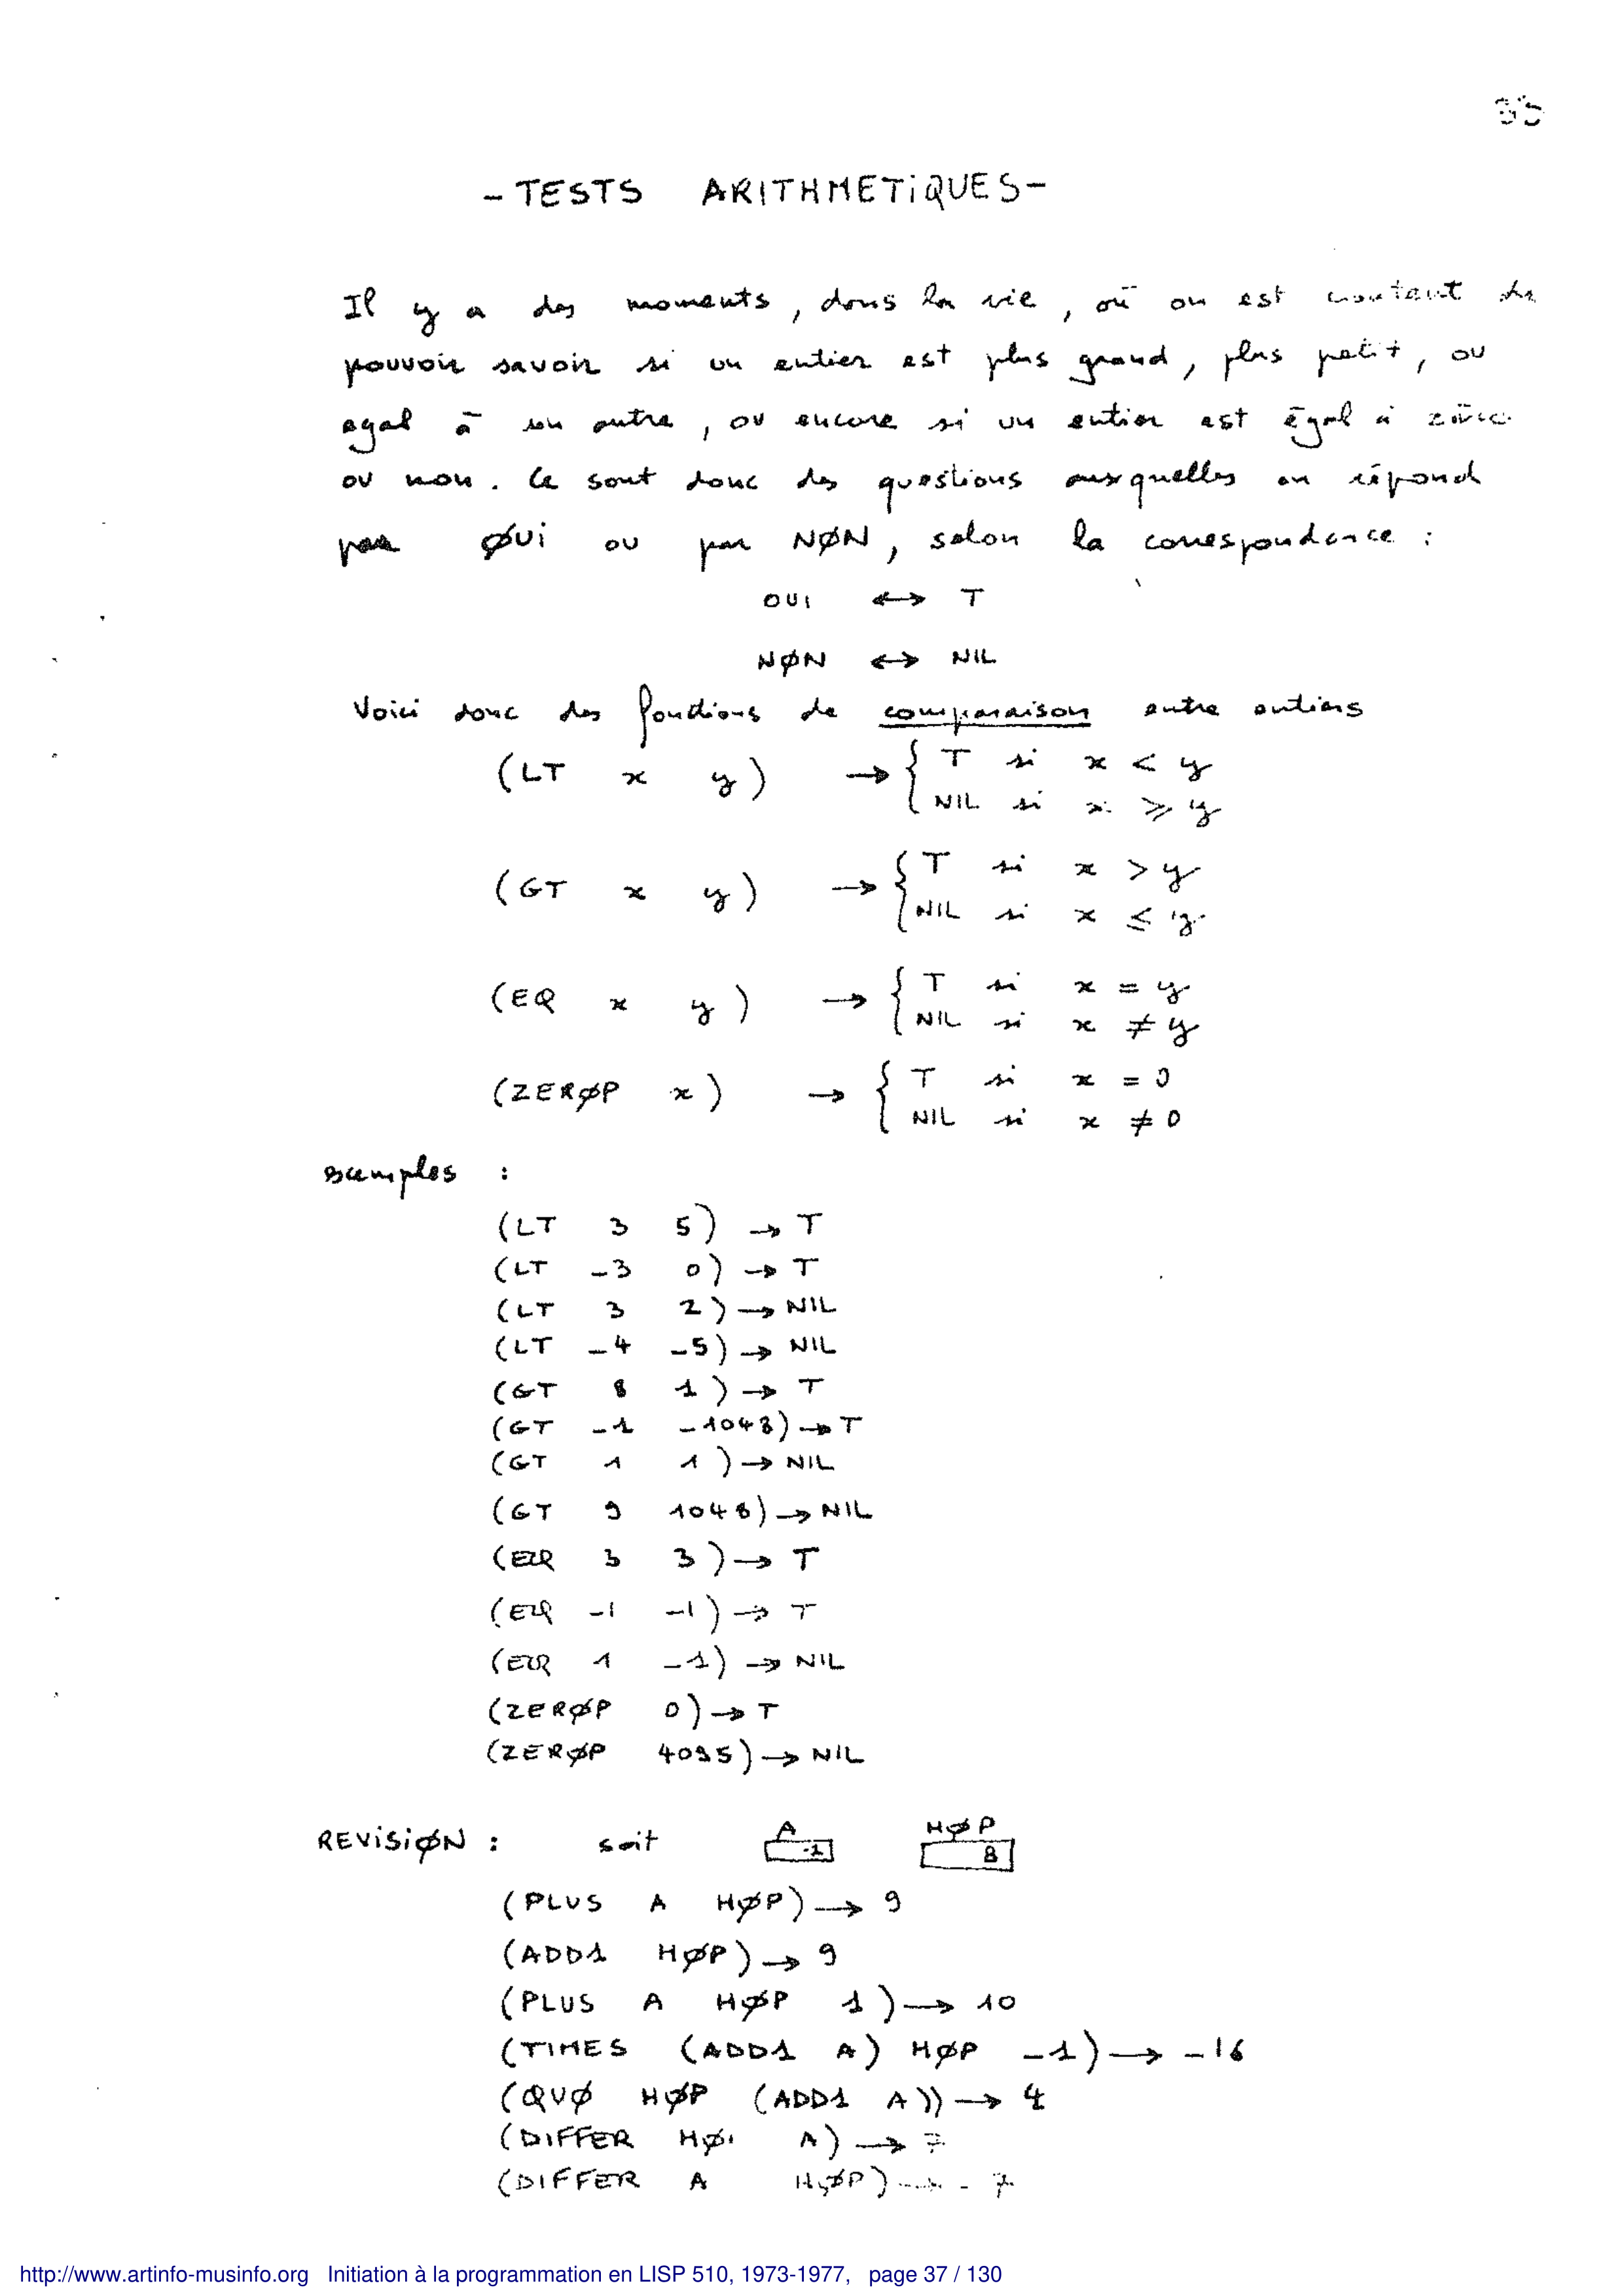 35
- TESTS ARITHMETiQUES -
Il y a des moments, dans la vie, où on est content de
pouvoir savoir si un entier est plus grand, plus petit, ou
egal à un autre, ou encore si un entier est égal à zéro
ou non. Ce sont donc des questions auxquelles on répond
par ØUi ou par NØN, selon la correspondance :
OUI ↔ T
NØN ↔ NIL
Voici donc des fonctions de comparaison entre entiers
(LT x y) → { T si x < y
NIL si x ≥ y
(GT x y) → { T si x > y
NIL si x ≤ y
(EQ x y) → { T si x = y
NIL si x ≠ y
(ZERØP x) → { T si x = 0
NIL si x ≠ 0
exemples :
(LT 3 5) → T
(LT -3 0) → T
(LT 3 2) → NIL
(LT -4 -5) → NIL
(GT 8 1) → T
(GT -1 -1048) → T
(GT 1 1) → NIL
(GT 9 1048) → NIL
(EQ 3 3) → T
(EQ -1 -1) → T
(EQ 1 -1) → NIL
(ZERØP 0) → T
(ZERØP 4095) → NIL
REViSiØN : soit A HØP
8
(PLUS A HØP) → 9
(ADD1 HØP) → 9
(PLUS A HØP 1) → 10
(TIMES (ADD1 A) HØP -1) → -16
(QUØ HØP (ADD1 A)) → 4
(DIFFER HØP A) → 7
(DIFFER A HØP) → - 7
http://www.artinfo-musinfo.org Initiation à la programmation en LISP 510, 1973-1977, page 37 / 130